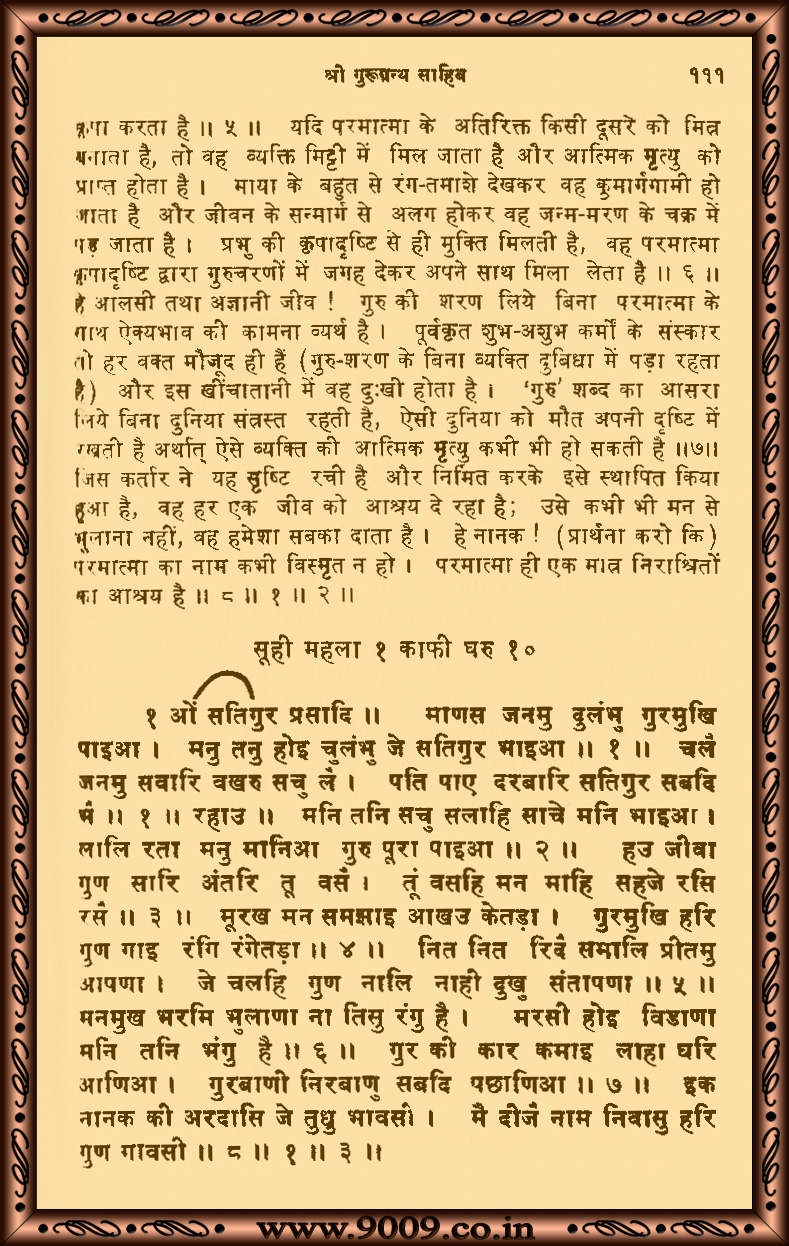 श्री गुरूग्रन्थ साहिब १११
कृपा करता है ॥ ५ ॥ यदि परमात्मा के अतिरिक्त किसी दूसरे को मित्र
बनाता है, तो वह व्यक्ति मिट्टी में मिल जाता है और आत्मिक मृत्यु को
प्राप्त होता है । माया के बहुत से रंग-तमाशे देखकर वह कुमार्गगामी हो
जाता है और जीवन के सन्मार्ग से अलग होकर वह जन्म-मरण के चक्र में
पड़ जाता है । प्रभु की कृपादृष्टि से ही मुक्ति मिलती है, वह परमात्मा
कृपादृष्टि द्वारा गुरुचरणों में जगह देकर अपने साथ मिला लेता है ॥ ६ ॥
हे आलसी तथा अज्ञानी जीव ! गुरु की शरण लिये बिना परमात्मा के
साथ ऐक्यभाव की कामना व्यर्थ है । पूर्वकृत शुभ-अशुभ कर्मों के संस्कार
तो हर वक्त मौजूद ही हैं (गुरु-शरण के बिना व्यक्ति दुबिधा में पड़ा रहता
है) और इस खींचातानी में वह दुःखी होता है । ‘गुरु’ शब्द का आसरा
लिये बिना दुनिया संत्रस्त रहती है, ऐसी दुनिया को मौत अपनी दृष्टि में
रखती है अर्थात् ऐसे व्यक्ति की आत्मिक मृत्यु कभी भी हो सकती है ॥७॥
जिस कर्तार ने यह सृष्टि रची है और निर्मित करके इसे स्थापित किया
हुआ है, वह हर एक जीव को आश्रय दे रहा है; उसे कभी भी मन से
भूलाना नहीं, वह हमेशा सबका दाता है । हे नानक ! (प्रार्थना करो कि)
परमात्मा का नाम कभी विस्मृत न हो । परमात्मा ही एक मात्र निराश्रितों
का आश्रय है ॥ ८ ॥ १ ॥ २ ॥
सूही महला १ काफी घरु १०
१ ओं सतिगुर प्रसादि ॥ माणस जनमु दुलंभु गुरमुखि
पाइआ । मनु तनु होइ चुलंभु जे सतिगुर भाइआ ॥ १ ॥ चलै
जनमु सवारि वखरु सचु लै । पति पाए दरबारि सतिगुर सबदि
भै ॥ १ ॥ रहाउ ॥ मनि तनि सचु सलाहि साचे मनि भाइआ ।
लालि रता मनु मानिआ गुरु पूरा पाइआ ॥ २ ॥ हउ जीवा
गुण सारि अंतरि तू वसै । तूं वसहि मन माहि सहजे रसि
रसै ॥ ३ ॥ मूरख मन समझाइ आखउ केतड़ा । गुरमुखि हरि
गुण गाइ रंगि रंगेतड़ा ॥ ४ ॥ नित नित रिदै समालि प्रीतमु
आपणा । जे चलहि गुण नालि नाही दुखु संतापणा ॥ ५ ॥
मनमुख भरमि भुलाणा ना तिसु रंगु है । मरसी होइ विडाणा
मनि तनि भंगु है ॥ ६ ॥ गुर की कार कमाइ लाहा घरि
आणिआ । गुरबाणी निरबाणु सबदि पछाणिआ ॥ ७ ॥ इक
नानक की अरदासि जे तुधु भावसी । मै दीजै नाम निवासु हरि
गुण गावसी ॥ ८ ॥ १ ॥ ३ ॥
www.9009.co.in